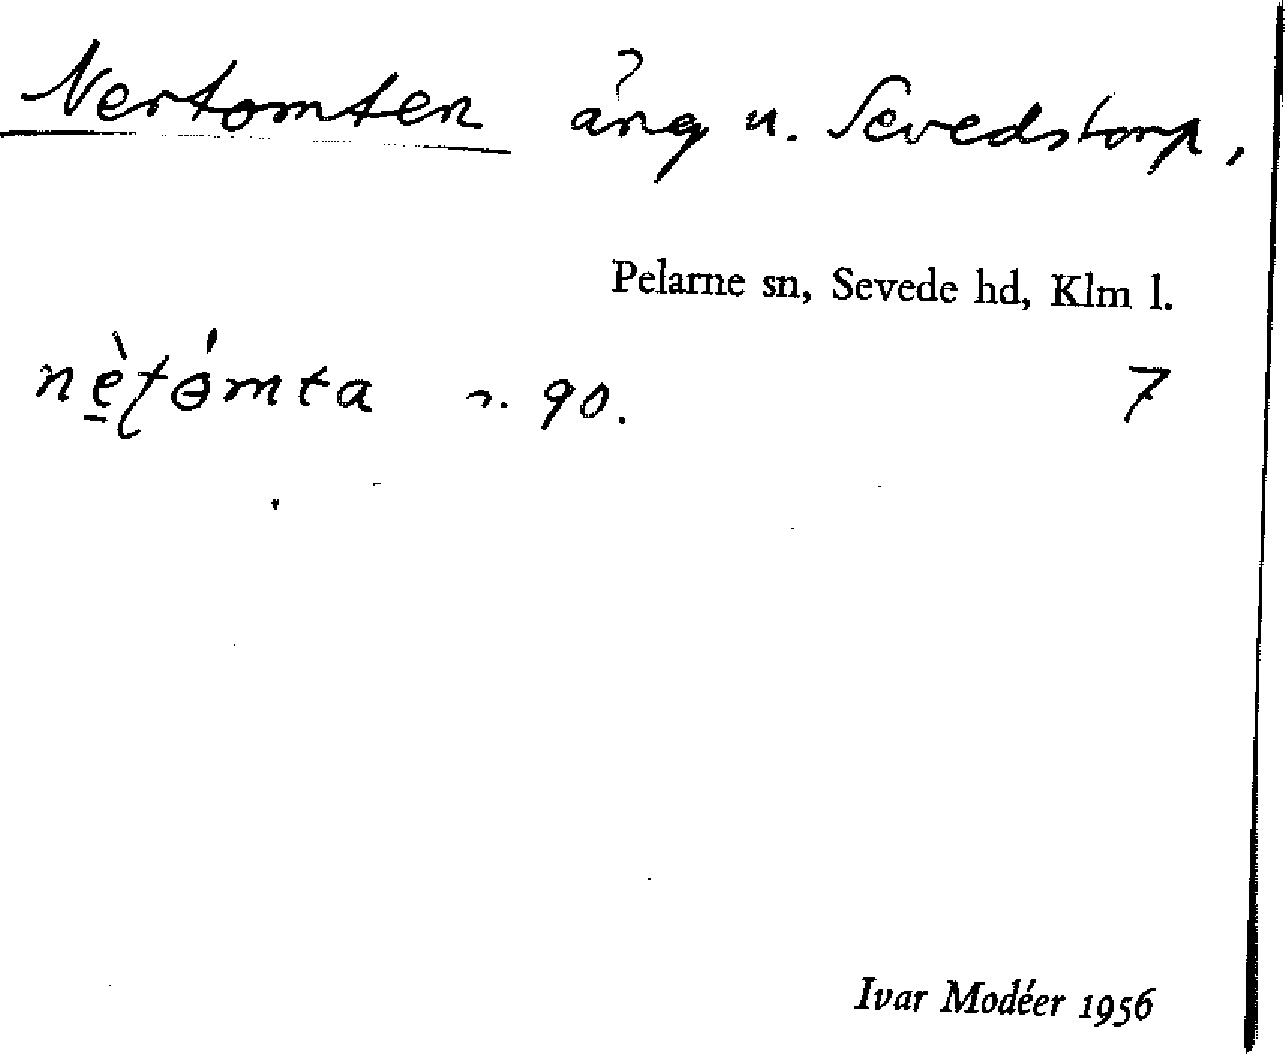 Nertomten äng u. Sevedstorp,
Pelarne sn, Sevede hd, Klm l.
nè̱ʈɵ́mta n. 90. 7
Ivar Modéer 1956